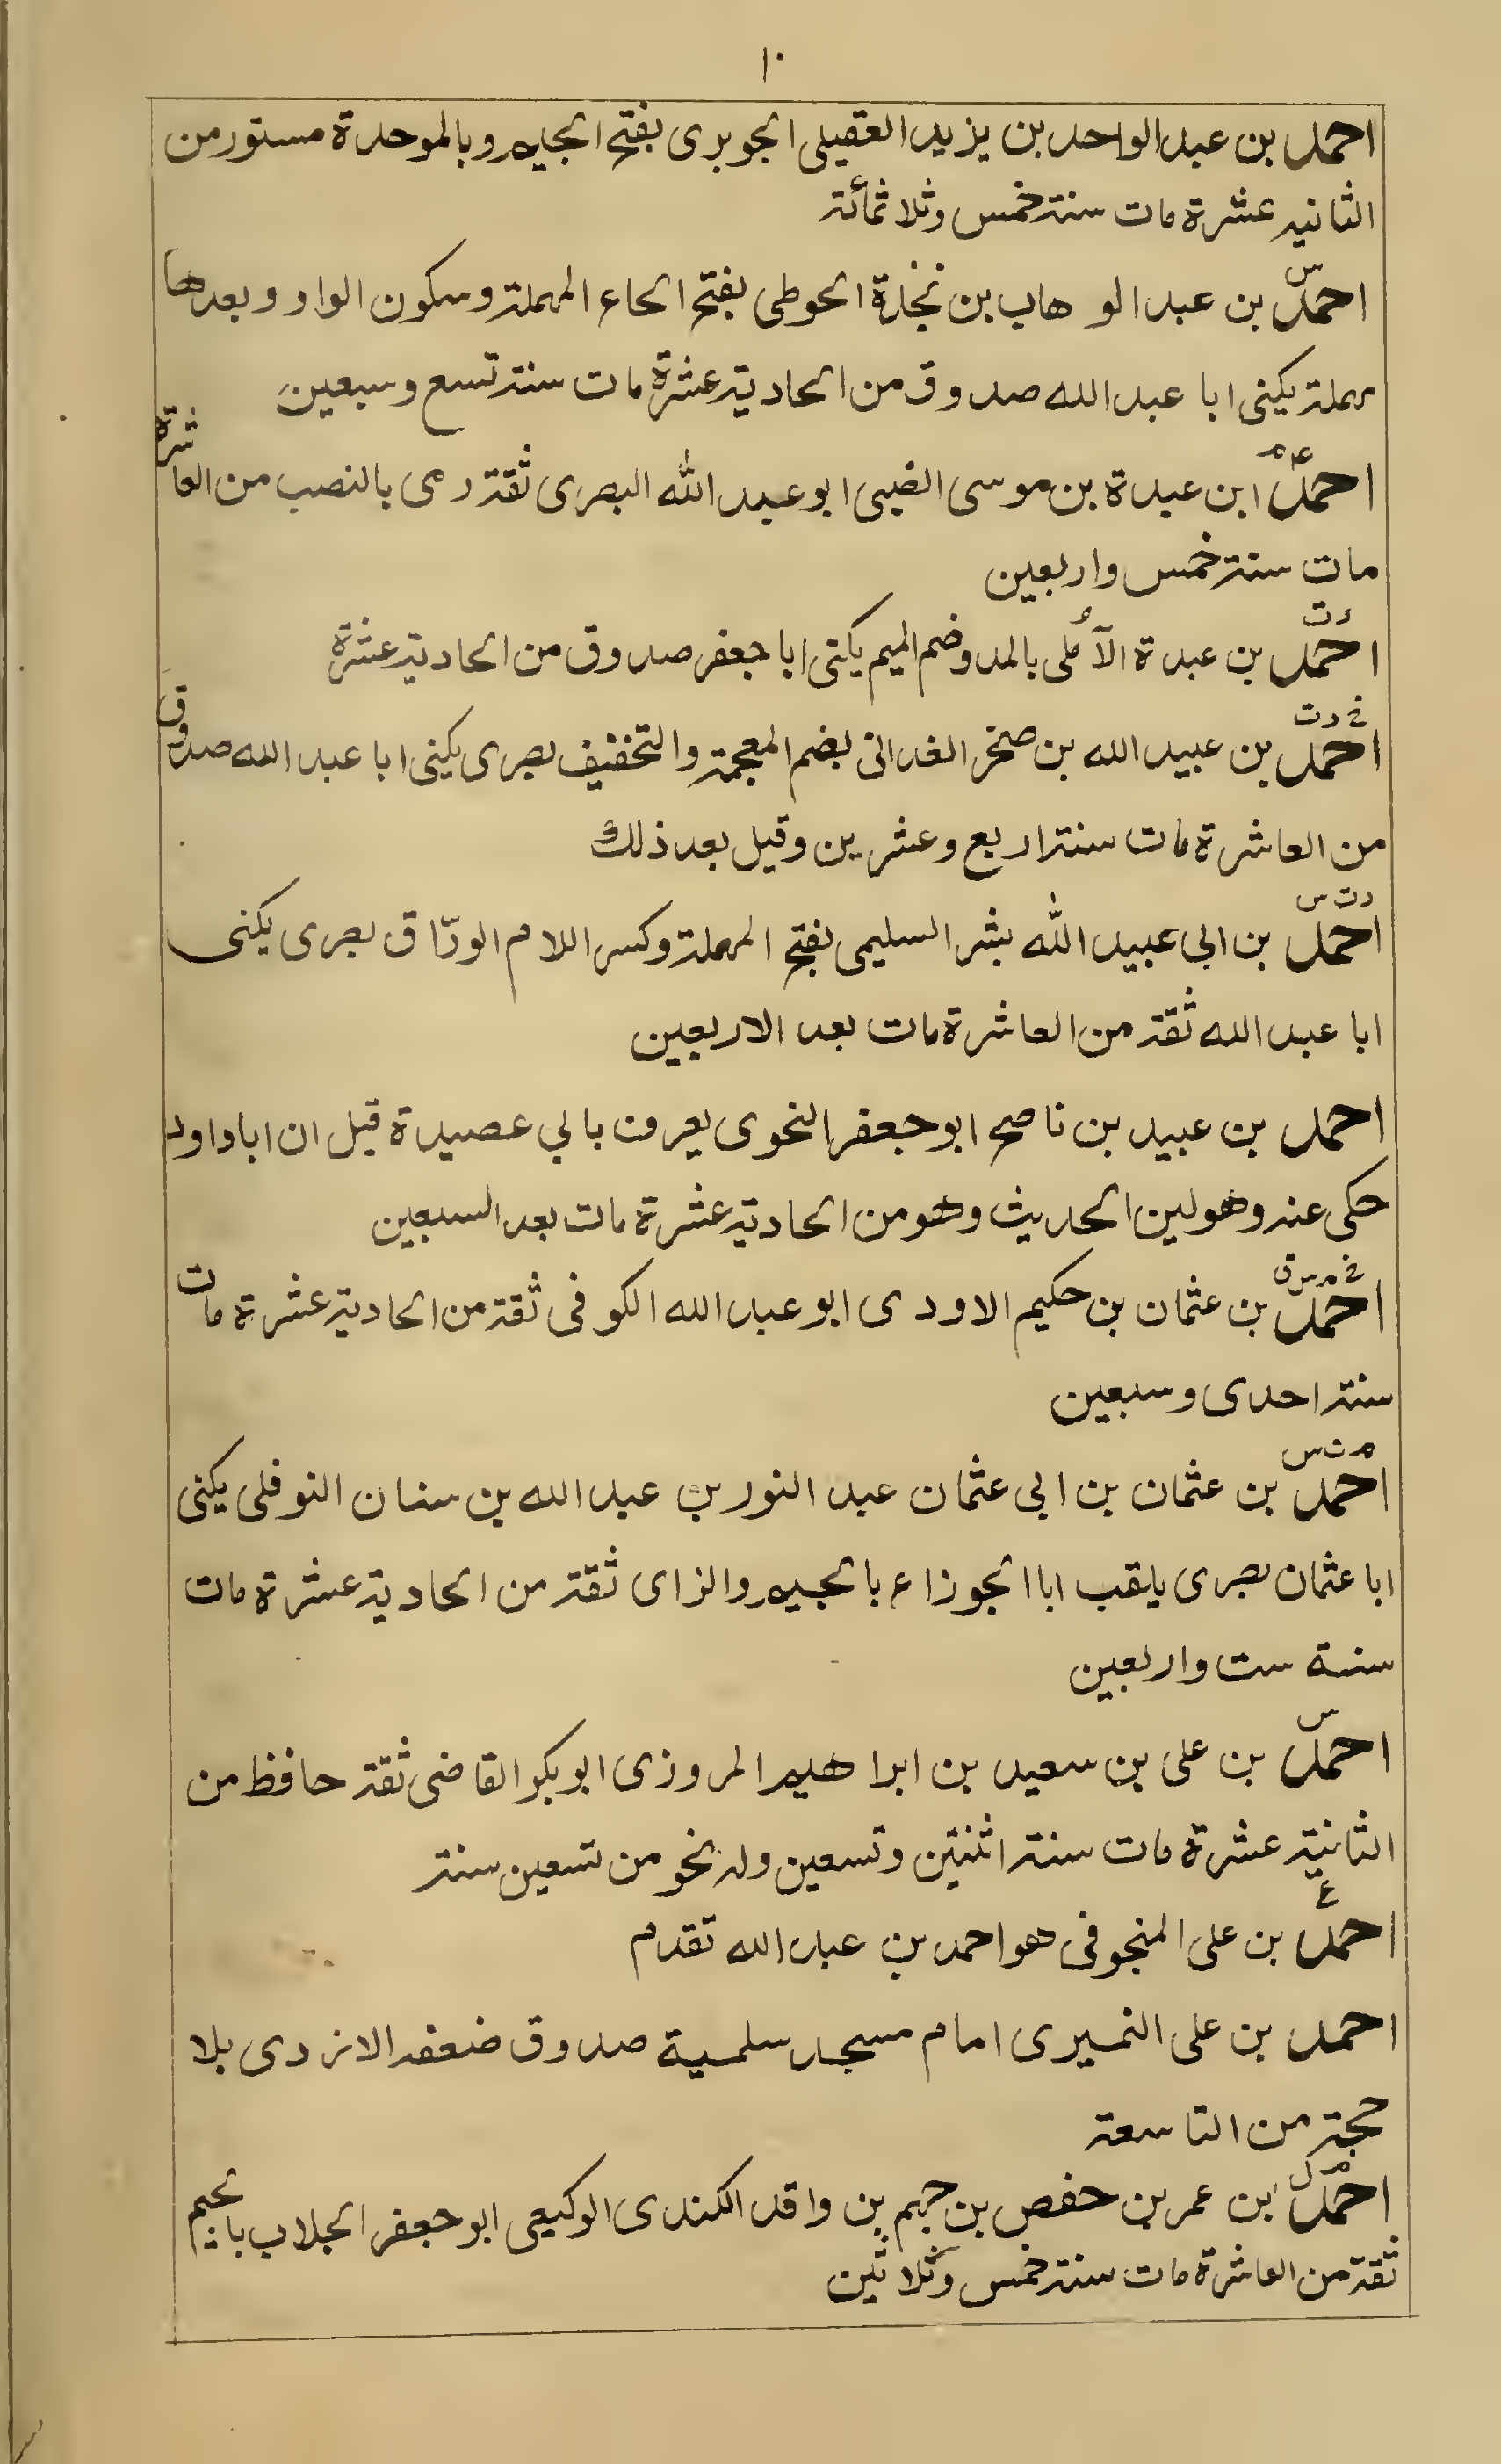 ١٠
احمد بن عبد الواحد بن يزيد العقيلى الجوبرى بفتح الجيم وبالموحدة مستور من
الثانيه عشرة مات سنة خمس وثلاثمائة
س
احمد بن عبد الوهاب بن نجدة الحوطى بفتح الحاء المهملة وسكون الواو وبعدها
مهملة يكنى ابا عبد الله صدوق من الحادية عشرة مات سنة تسع وسبعين
م ع
احمد ابن عبدة بن موسى الضبى ابو عبد الله البصرى ثقة رمى بالنصب من العاشرة
مات سنة خمس واربعين
د ت
احمد بن عبدة الآملى بالمد وضم الميم يكنى ابا جعفر صدوق من الحادية عشرة
خ د ت
احمد بن عبيد الله بن صخر الغدانى بضم المعجمة والتخفيف بصرى يكنى ابا عبد الله صدوق
من العاشرة مات سنة اربع وعشرين وقيل بعد ذلك
د ت س
احمد بن ابى عبيد الله بشر السليمى بفتح المهملة وكسر اللام الورّاق بصرى يكنى
ابا عبد الله ثقة من العاشرة مات بعد الاربعين
احمد بن عبيد بن ناصح ابو جعفر النحوى يعرف بابي عصيدة قيل ان ابا داود
حكى عنه وهو لين الحديث وهو من الحادية عشرة مات بعد السبعين
خ م س ق
احمد بن عثمان بن حكيم الاودى ابو عبد الله الكوفى ثقة من الحادية عشرة مات
سنة احدى وسبعين
م ت س
احمد بن عثمان بن ابى عثمان عبد النور بن عبد الله بن سنان النوفلى يكنى
ابا عثمان بصرى يلقب ابا الجوزاء بالجيم والزاى ثقة من الحادية عشرة مات
سنة ست واربعين
س
احمد بن على بن سعيد بن ابراهيم المروزى ابو بكر القاضى ثقة حافظ من
الثانية عشرة مات سنة اثنتين وتسعين وله نحو من تسعين سنة
خ
احمد بن على المنجوفى هو احمد بن عبد الله تقدم
احمد بن على النميرى امام مسجد سلمية صدوق ضعفه الازدى بلا
حجة من التاسعة
م ل
احمد بن عمر بن حفص بن جهم بن واقد الكندى الوكيعى ابو جعفر الجلاب بالجيم
ثقة من العاشرة مات سنة خمس وثلاثين